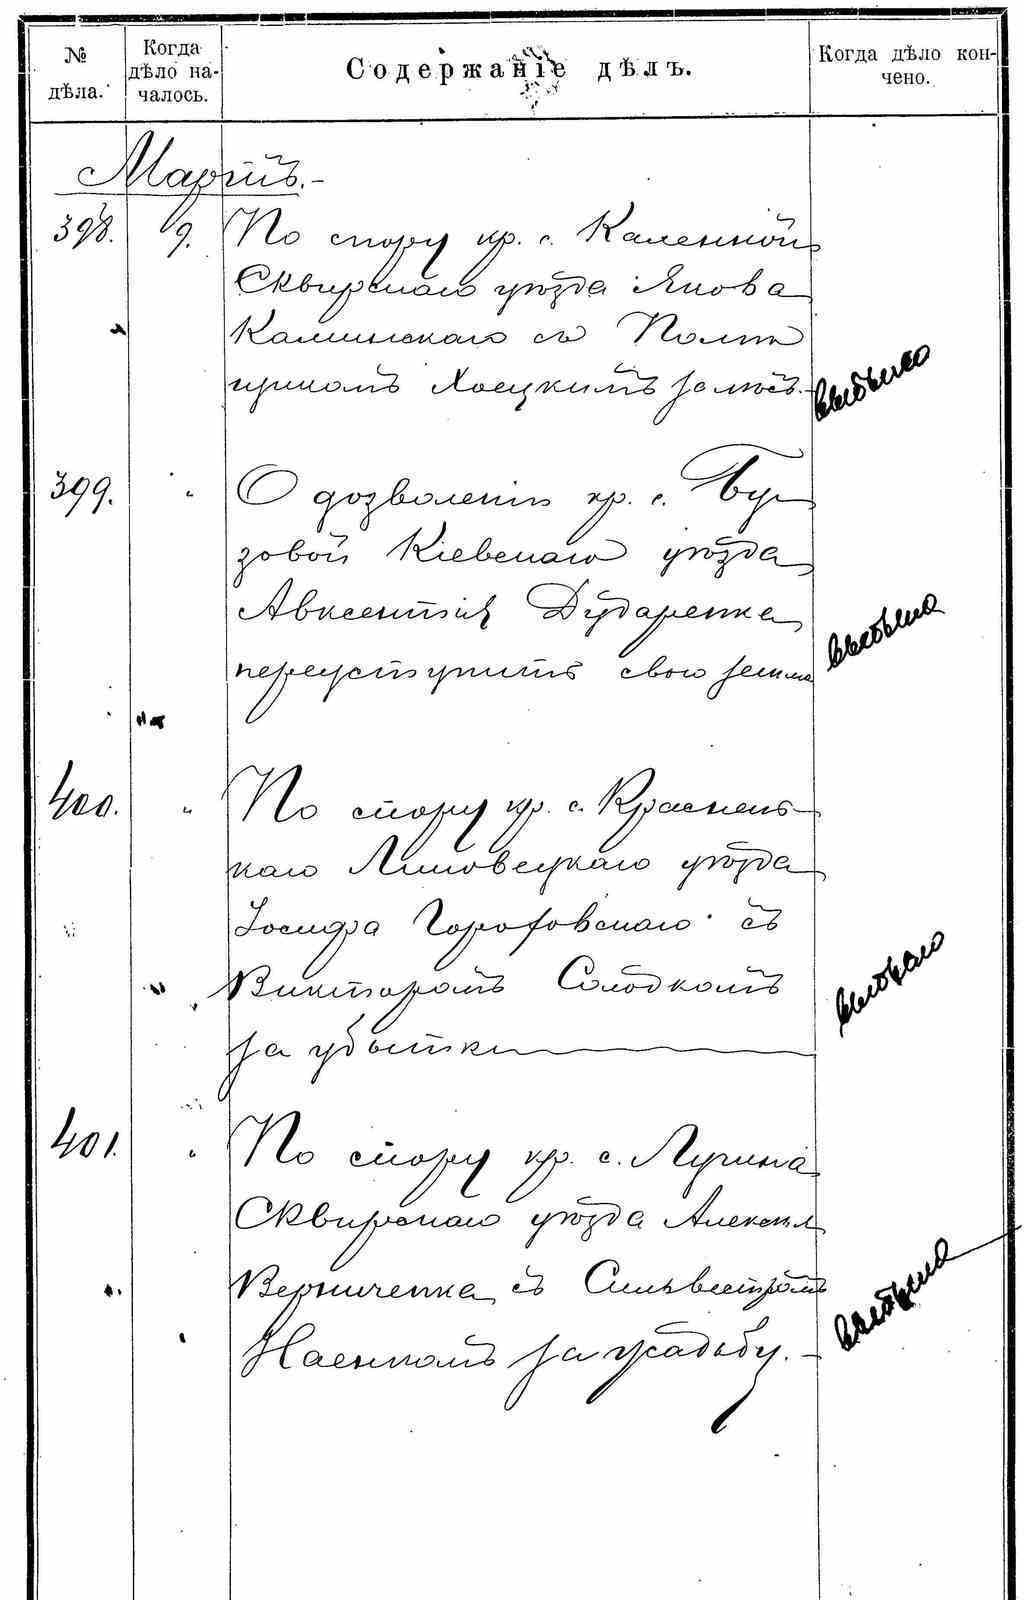 № дѣла.
Когда дѣло на-
чалось.
Содержаніе дѣлъ.
Когда дѣло кон-
чено.
Мартъ.-
398. 9. По спору кр. с. Каленной
Сквирскаго уѣзда Якова
Каминскаго съ
Хоецкимъ за лѣсъ.-
выбыло
399. " О дозволеніи кр. с. Бу-
зовой Кіевскаго уѣзда
Авксентія Дударенка
переуступить свою земл
выбыло
400. " По спору кр. с. Красенъ-
каго Липовецкаго уѣзда
Іосифа Гороховскаго съ
Викторомъ Солодкомъ
за убытки
выбыло
401. " По спору кр. с. Лучина
Сквирскаго уѣзда Алексѣя
Верниченка съ Сильвестромъ
Наенкомъ за усадьбу.-
выбыло